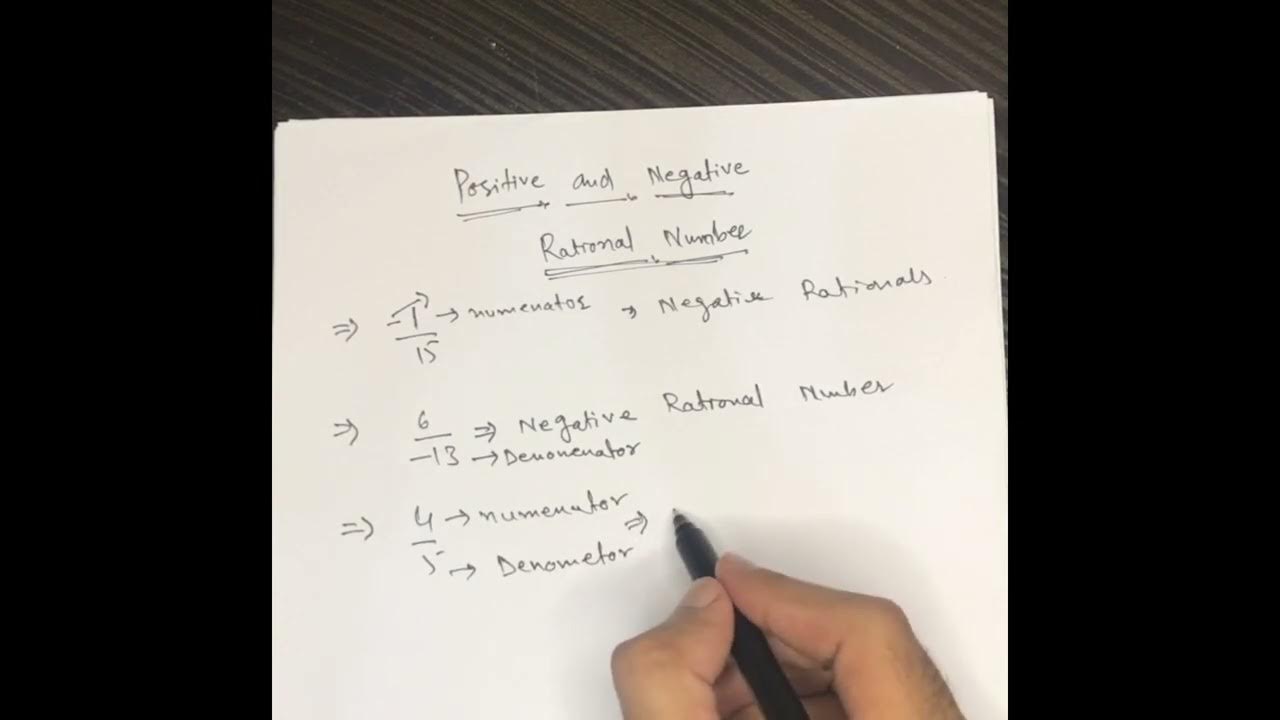 Positive and Negative
Rational Number
⇒ -1 → numenator → Negative Rationals
15
⇒ 6 ⇒ Negative Rational Number
-13 → Denonenator
⇒ 4 → numenutor ⇒
5 → Denometor